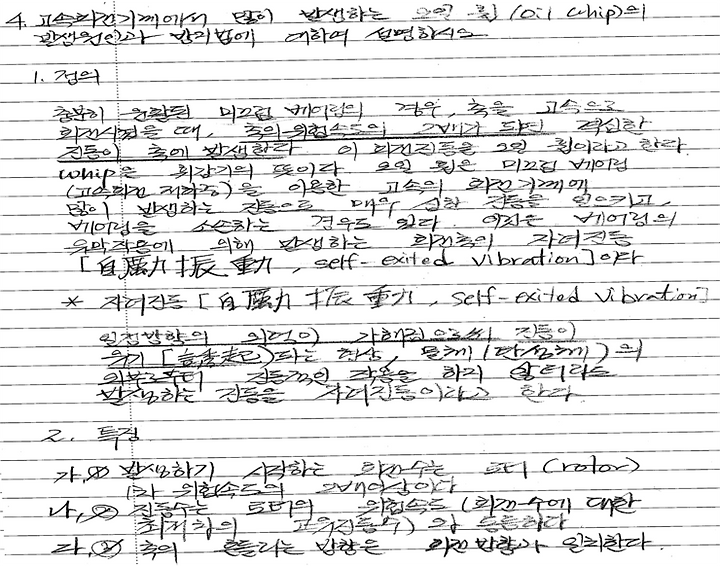 4. 고속회전기계에서 많이 발생하는 오일 휩(Oil whip)의
발생원인과 방지법에 대하여 설명하시오
1. 정의
충분히 윤활된 미끄럼 베어링의 경우, 축을 고속으로
회전시켰을 때, 축의 위험속도의 2배가 되면 격심한
진동이 축에 발생한다 이 회전진동을 오일 휩이라고 한다
whip은 휘감기의 뜻이라 오일 휩은 미끄럼 베어링
(고속회전 저하중)을 이용한 고속의 회전기계에
많이 발생하는 진동으로 매우 심한 진동을 일으키고,
베어링을 소손하는 경우도 있다. 이것은 베어링의
유막작용에 의해 발생하는 회전축의 자려진동
[自勵力 振動, self-exited vibration]이다
* 자려진동 [自勵力 振動, self-exited vibration]
일정방향의 외력이 가해짐으로써 진동이
야기 되는 현상, 물체(탄성체)의
외부로부터 진동적인 작용을 하지 않더라도
발생하는 진동을 자려진동이라고 한다.
2. 특징
가, ① 발생하기 시작하는 회전수는 로터(rotor)
1차 위험속도의 2배이상이다
나, ② 진동수는 로터의 위험속도(회전수에 대한
최저차의 고유진동수)와 동등하다
라, ② 축의 흔들리는 방향은 회전방향과 일치한다.